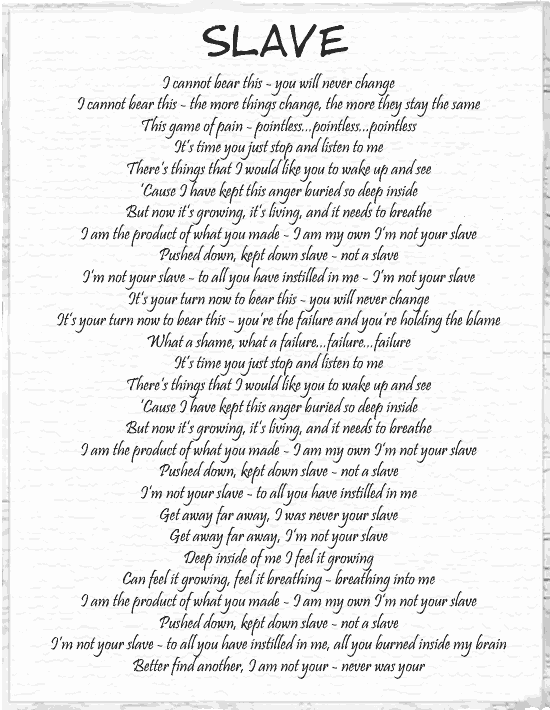 SLAVE
I cannot bear this ~ you will never change
I cannot bear this ~ the more things change, the more they stay the same
This game of pain ~ pointless...pointless...pointless
It's time you just stop and listen to me
There's things that I would like you to wake up and see
'Cause I have kept this anger buried so deep inside
But now it's growing, it's living, and it needs to breathe
I am the product of what you made ~ I am my own I'm not your slave
Pushed down, kept down slave ~ not a slave
I'm not your slave ~ to all you have instilled in me ~ I'm not your slave
It's your turn now to bear this ~ you will never change
It's your turn now to bear this ~ you're the failure and you're holding the blame
What a shame, what a failure...failure...failure
It's time you just stop and listen to me
There's things that I would like you to wake up and see
'Cause I have kept this anger buried so deep inside
But now it's growing, it's living, and it needs to breathe
I am the product of what you made ~ I am my own I'm not your slave
Pushed down, kept down slave ~ not a slave
I'm not your slave ~ to all you have instilled in me
Get away far away, I was never your slave
Get away far away, I'm not your slave
Deep inside of me I feel it growing
Can feel it growing, feel it breathing ~ breathing into me
I am the product of what you made ~ I am my own I'm not your slave
Pushed down, kept down slave ~ not a slave
I'm not your slave ~ to all you have instilled in me, all you burned inside my brain
Better find another, I am not your ~ never was your